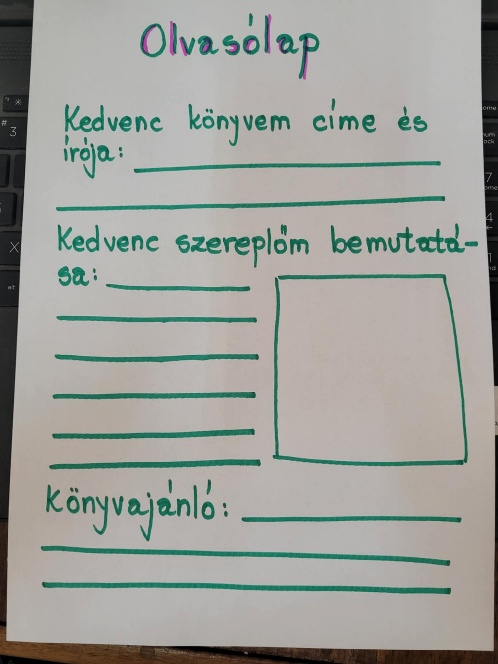 Olvasólap
Kedvenc könyvem címe és
írója:
Kedvenc szereplőm bemutatá-
sa:
Könyvajánló: